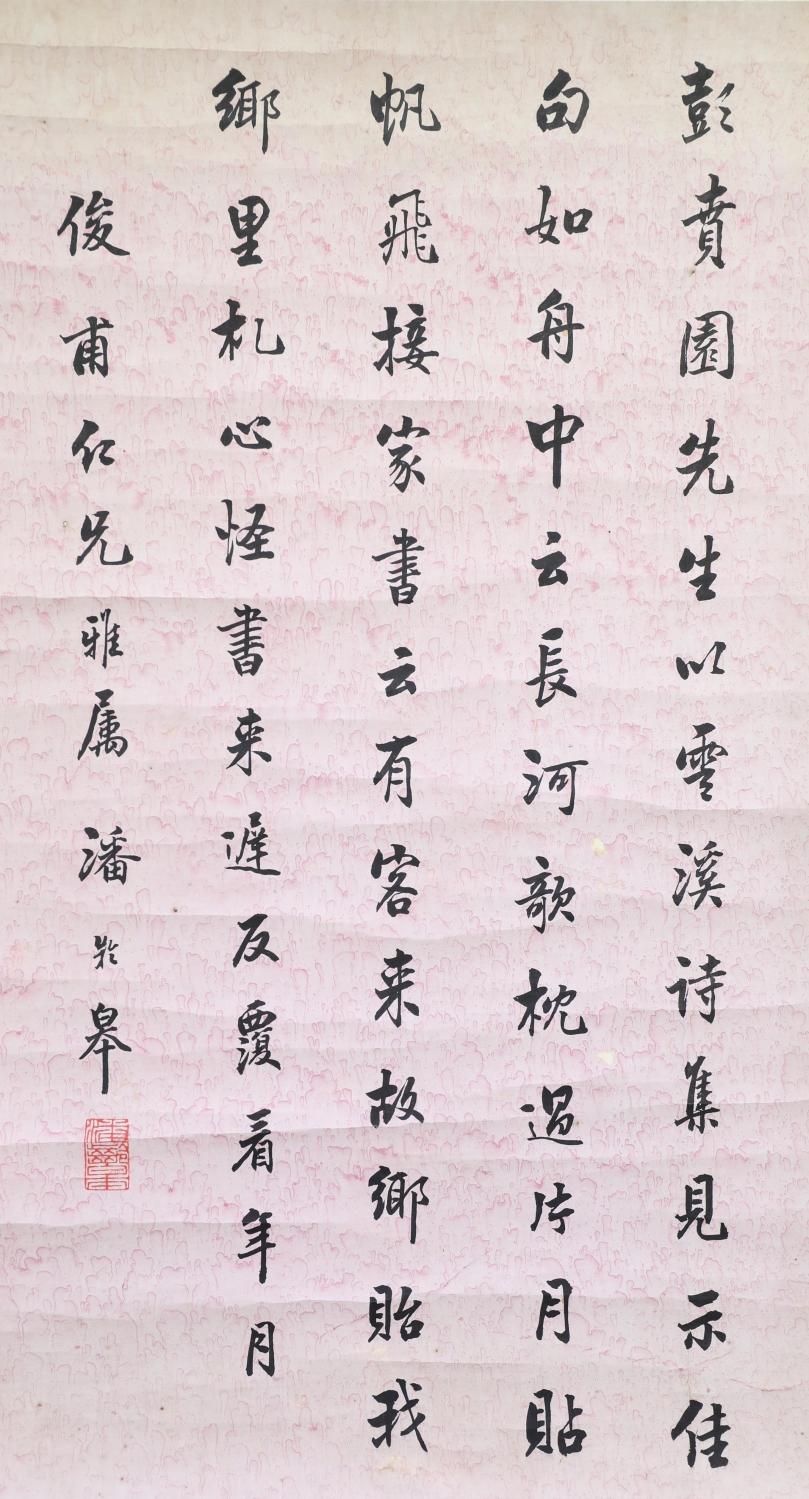 彭賁園先生以雲溪诗集見示佳
句如舟中云長河歌枕過片月貼
帆飛接家書云有客来故鄉貽我
鄉里札心怪書来遲反覆看年月
俊甫仁兄雅属潘齡皋